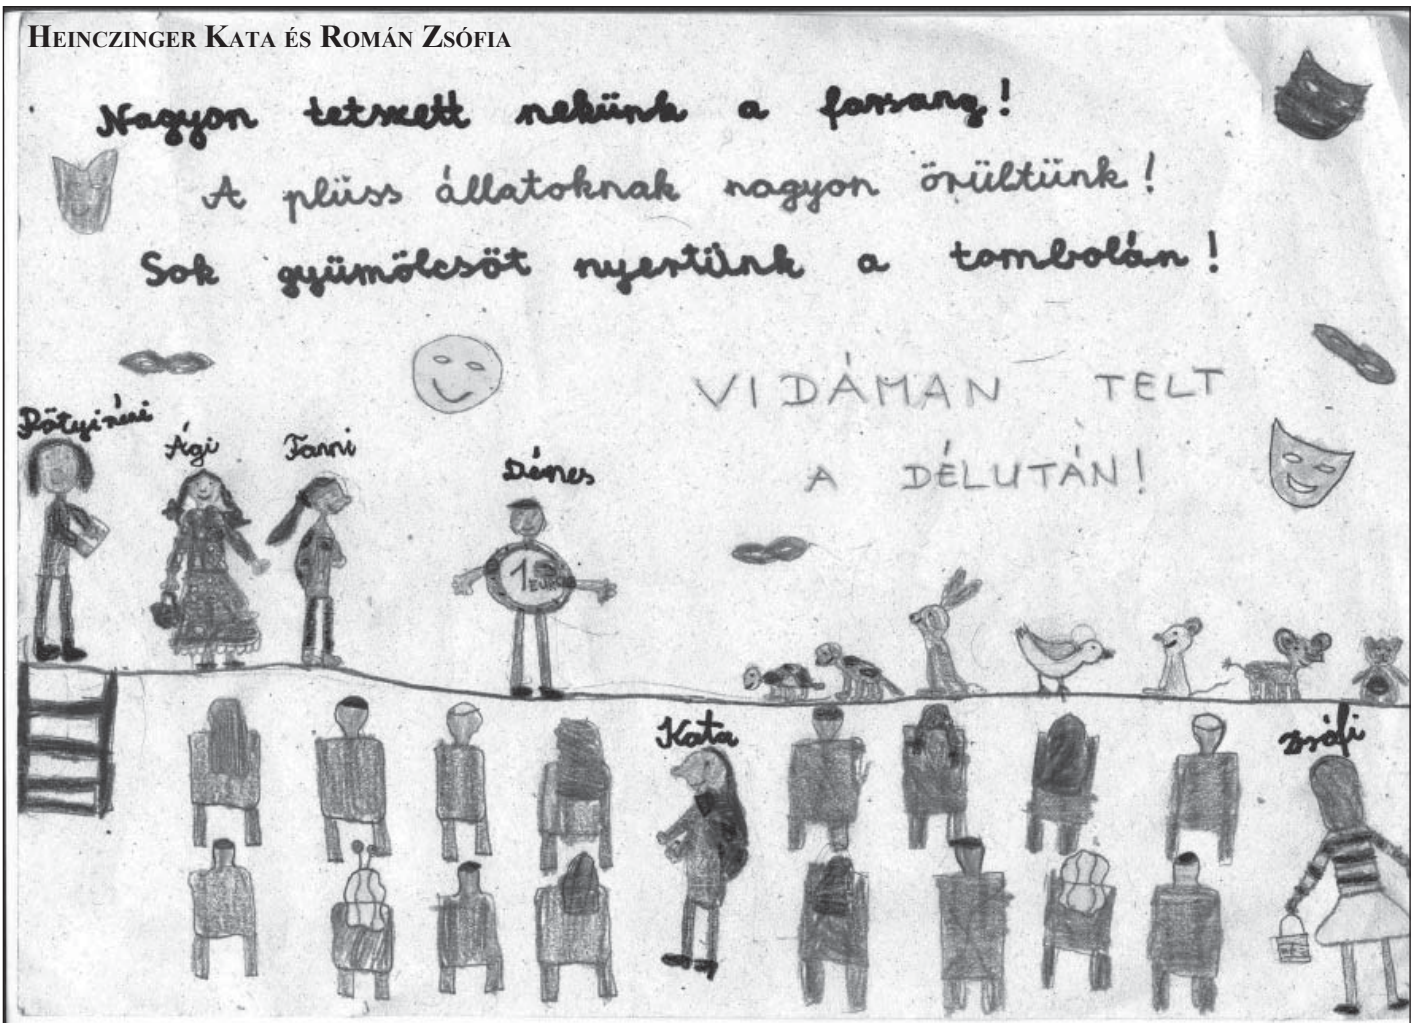 HEINCZINGER KATA ÉS ROMÁN ZSÓFIA
Nagyon tetszett nekünk a farsang!
A plüss állatoknak nagyon örültünk!
Sok gyümölcsöt nyertünk a tombolán!
VIDÁMAN TELT
A DÉLUTÁN!
Pötyi néni
Ági
Fanni
Dénes
1 EURO
Kata
Zsófi